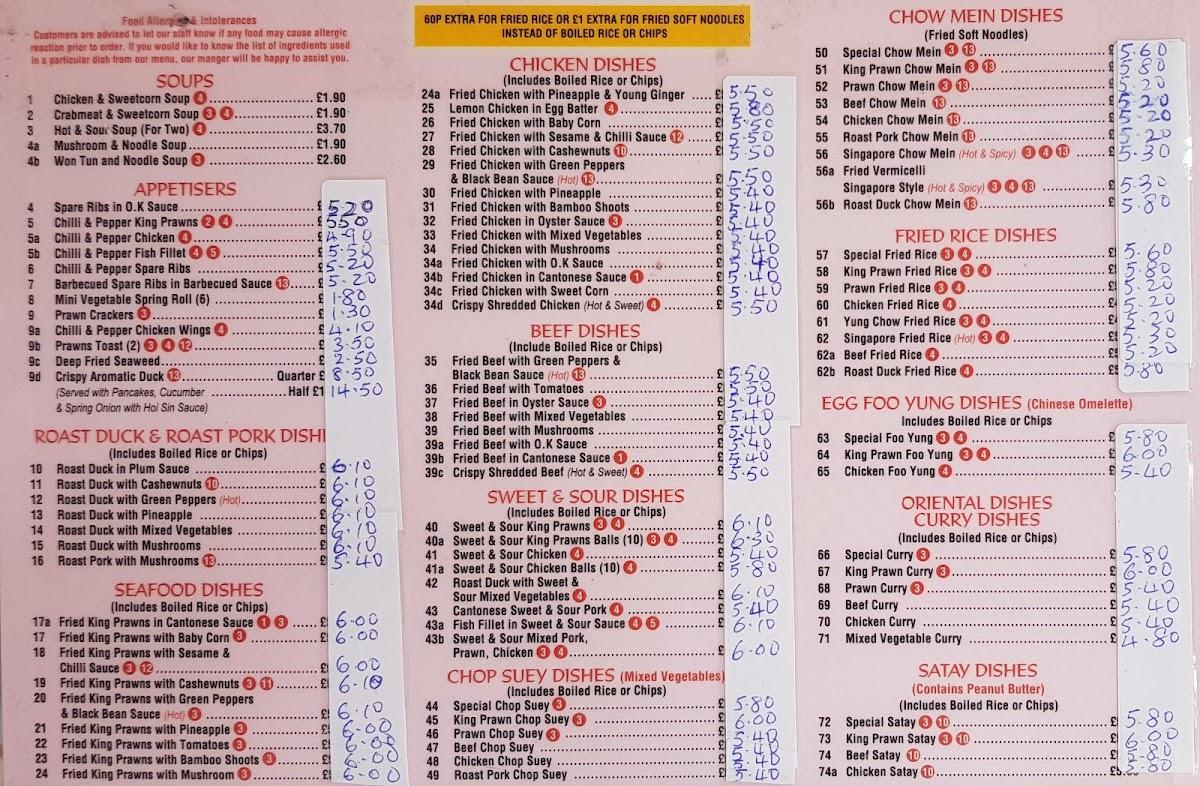 Food Allergies & Intolerances
Customers are advised to let our staff know if any food may cause allergic
reaction prior to order. If you would like to know the list of ingredients used
in a particular dish from our menu, our manger will be happy to assist you.
SOUPS
1 Chicken & Sweetcorn Soup 4 £1.90
2 Crabmeat & Sweetcorn Soup 3 4 £1.90
3 Hot & Sour Soup (For Two) 4 £3.70
4a Mushroom & Noodle Soup £1.90
4b Won Tun and Noodle Soup 3 £2.60
APPETISERS
4 Spare Ribs in O.K Sauce £ 5.20
5 Chilli & Pepper King Prawns 2 4 £ 5.50
5a Chilli & Pepper Chicken 4 £ 4.90
5b Chilli & Pepper Fish Fillet 4 5 £ 5.50
6 Chilli & Pepper Spare Ribs £ 5.20
7 Barbecued Spare Ribs in Barbecued Sauce 13 £ 5.20
8 Mini Vegetable Spring Roll (6) £ 1.80
9 Prawn Crackers 3 £ 1.30
9a Chilli & Pepper Chicken Wings 4 £ 4.10
9b Prawns Toast (2) 3 4 12 £ 3.50
9c Deep Fried Seaweed £ 2.50
9d Crispy Aromatic Duck 13 Quarter £ 8.50
(Served with Pancakes, Cucumber Half £1 14.50
& Spring Onion with Hoi Sin Sauce)
ROAST DUCK & ROAST PORK DISH
(Includes Boiled Rice or Chips)
10 Roast Duck in Plum Sauce £ 6.10
11 Roast Duck with Cashewnuts 10 £ 6.10
12 Roast Duck with Green Peppers (Hot) £ 6.10
13 Roast Duck with Pineapple £ 6.10
14 Roast Duck with Mixed Vegetables £ 6.10
15 Roast Duck with Mushrooms £ 6.10
16 Roast Pork with Mushrooms 13 £ 5.40
SEAFOOD DISHES
(Includes Boiled Rice or Chips)
17a Fried King Prawns in Cantonese Sauce 1 3 £ 6.00
17 Fried King Prawns with Baby Corn 3 £ 6.00
18 Fried King Prawns with Sesame &
Chilli Sauce 3 12 £ 6.00
19 Fried King Prawns with Cashewnuts 3 11 £ 6.10
20 Fried King Prawns with Green Peppers
& Black Bean Sauce (Hot) 3 £ 6.10
21 Fried King Prawns with Pineapple 3 £ 6.00
22 Fried King Prawns with Tomatoes 3 £ 6.00
23 Fried King Prawns with Bamboo Shoots 3 £ 6.00
24 Fried King Prawns with Mushroom 3 £ 6.00
60P EXTRA FOR FRIED RICE OR £1 EXTRA FOR FRIED SOFT NOODLES
INSTEAD OF BOILED RICE OR CHIPS
CHICKEN DISHES
(Includes Boiled Rice or Chips)
24a Fried Chicken with Pineapple & Young Ginger £ 5.50
25 Lemon Chicken in Egg Batter 4 £ 5.80
26 Fried Chicken with Baby Corn £ 5.50
27 Fried Chicken with Sesame & Chilli Sauce 12 £ 5.50
28 Fried Chicken with Cashewnuts 10 £ 5.50
29 Fried Chicken with Green Peppers
& Black Bean Sauce (Hot) 13 £ 5.50
30 Fried Chicken with Pineapple £ 5.40
31 Fried Chicken with Bamboo Shoots £ 5.40
32 Fried Chicken in Oyster Sauce 3 £ 5.40
33 Fried Chicken with Mixed Vegetables £ 5.40
34 Fried Chicken with Mushrooms £ 5.40
34a Fried Chicken with O.K Sauce £ 5.40
34b Fried Chicken in Cantonese Sauce 1 £ 5.40
34c Fried Chicken with Sweet Corn £ 5.40
34d Crispy Shredded Chicken (Hot & Sweet) 4 £ 5.50
BEEF DISHES
(Include Boiled Rice or Chips)
35 Fried Beef with Green Peppers &
Black Bean Sauce (Hot) 13 £ 5.50
36 Fried Beef with Tomatoes £
37 Fried Beef in Oyster Sauce 3 £ 5.40
38 Fried Beef with Mixed Vegetables £ 5.40
39 Fried Beef with Mushrooms £ 5.40
39a Fried Beef with O.K Sauce £ 5.40
39b Fried Beef in Cantonese Sauce 1 £ 5.40
39c Crispy Shredded Beef (Hot & Sweet) 4 £ 5.50
SWEET & SOUR DISHES
(Includes Boiled Rice or Chips)
40 Sweet & Sour King Prawns 3 4 £ 6.10
40a Sweet & Sour King Prawns Balls (10) 3 4 £ 6.50
41 Sweet & Sour Chicken 4 £ 5.40
41a Sweet & Sour Chicken Balls (10) 4 £ 5.80
42 Roast Duck with Sweet &
Sour Mixed Vegetables 4 £ 6.10
43 Cantonese Sweet & Sour Pork 4 £ 5.40
43a Fish Fillet in Sweet & Sour Sauce 4 5 £ 6.10
43b Sweet & Sour Mixed Pork,
Prawn, Chicken 3 4 £ 6.00
CHOP SUEY DISHES (Mixed Vegetables)
(Includes Boiled Rice or Chips)
44 Special Chop Suey 3 £ 5.80
45 King Prawn Chop Suey 3 £ 6.00
46 Prawn Chop Suey 3 £ 5.40
47 Beef Chop Suey £ 5.40
48 Chicken Chop Suey £ 5.40
49 Roast Pork Chop Suey £ 5.40
CHOW MEIN DISHES
(Fried Soft Noodles)
50 Special Chow Mein 3 13 £ 5.60
51 King Prawn Chow Mein 3 13 £ 5.80
52 Prawn Chow Mein 3 13 £ 5.20
53 Beef Chow Mein 13 £ 5.20
54 Chicken Chow Mein 13 £ 5.20
55 Roast Pork Chow Mein 13 £ 5.20
56 Singapore Chow Mein (Hot & Spicy) 3 4 13 £ 5.30
56a Fried Vermicelli
Singapore Style (Hot & Spicy) 3 4 13 £ 5.30
56b Roast Duck Chow Mein 13 £ 5.80
FRIED RICE DISHES
57 Special Fried Rice 3 4 £ 5.60
58 King Prawn Fried Rice 3 4 £ 5.80
59 Prawn Fried Rice 3 4 £ 5.20
60 Chicken Fried Rice 4 £ 5.20
61 Yung Chow Fried Rice 3 4 £ 5.20
62 Singapore Fried Rice (Hot) 3 4 £ 5.30
62a Beef Fried Rice 4 £ 5.20
62b Roast Duck Fried Rice 4 £ 5.80
EGG FOO YUNG DISHES (Chinese Omelette)
Includes Boiled Rice or Chips
63 Special Foo Yung 3 4 £ 5.80
64 King Prawn Foo Yung 3 4 £ 6.00
65 Chicken Foo Yung 4 £ 5.40
ORIENTAL DISHES
CURRY DISHES
(Includes Boiled Rice or Chips)
66 Special Curry 3 £ 5.80
67 King Prawn Curry 3 £ 6.00
68 Prawn Curry 3 £ 5.40
69 Beef Curry £ 5.40
70 Chicken Curry £ 5.40
71 Mixed Vegetable Curry £ 4.80
SATAY DISHES
(Contains Peanut Butter)
(Includes Boiled Rice or Chips)
72 Special Satay 3 10 £ 5.80
73 King Prawn Satay 3 10 £ 6.00
74 Beef Satay 10 £ 5.80
74a Chicken Satay 10 £ 5.80